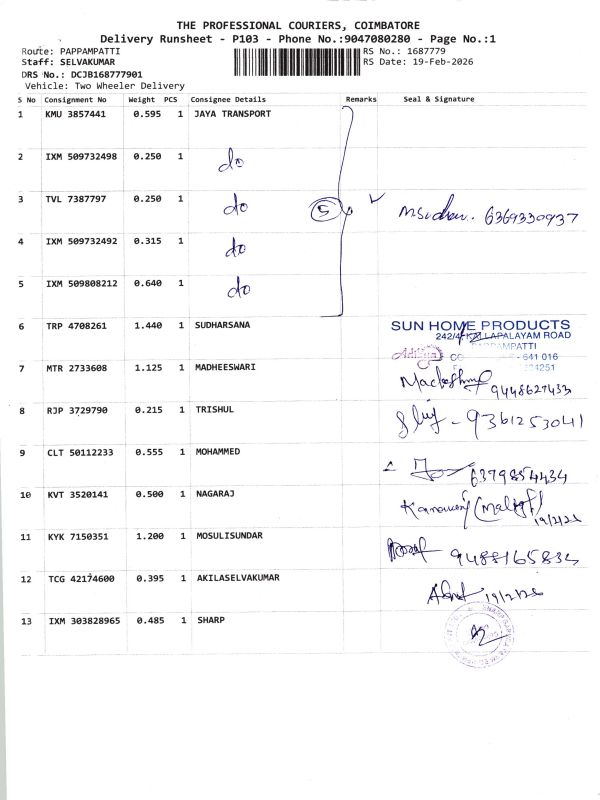 THE PROFESSIONAL COURIERS, COIMBATORE
Delivery Runsheet - P103 - Phone No.:9047080280 - Page No.:1
Route: PAPPAMPATTI RS No.: 1687779
Staff: SELVAKUMAR RS Date: 19-Feb-2026
DRS No.: DCJB168777901
Vehicle: Two Wheeler Delivery
S No Consignment No Weight PCS Consignee Details Remarks Seal & Signature
1 KMU 3857441 0.595 1 JAYA TRANSPORT
2 IXM 509732498 0.250 1 do
3 TVL 7387797 0.250 1 do 5 6369330937
4 IXM 509732492 0.315 1 do
5 IXM 509808212 0.640 1 do
6 TRP 4708261 1.440 1 SUDHARSANA SUN HOME PRODUCTS
ROAD
PAPPAMPATTI
641 016
7 MTR 2733608 1.125 1 MADHEESWARI
8 RJP 3729790 0.215 1 TRISHUL 9361253041
9 CLT 50112233 0.555 1 MOHAMMED 6379854434
10 KVT 3520141 0.500 1 NAGARAJ 19/2/26
11 KYK 7150351 1.200 1 MOSULISUNDAR 9488165834
12 TCG 42174600 0.395 1 AKILASELVAKUMAR 19/2/26
13 IXM 303828965 0.485 1 SHARP